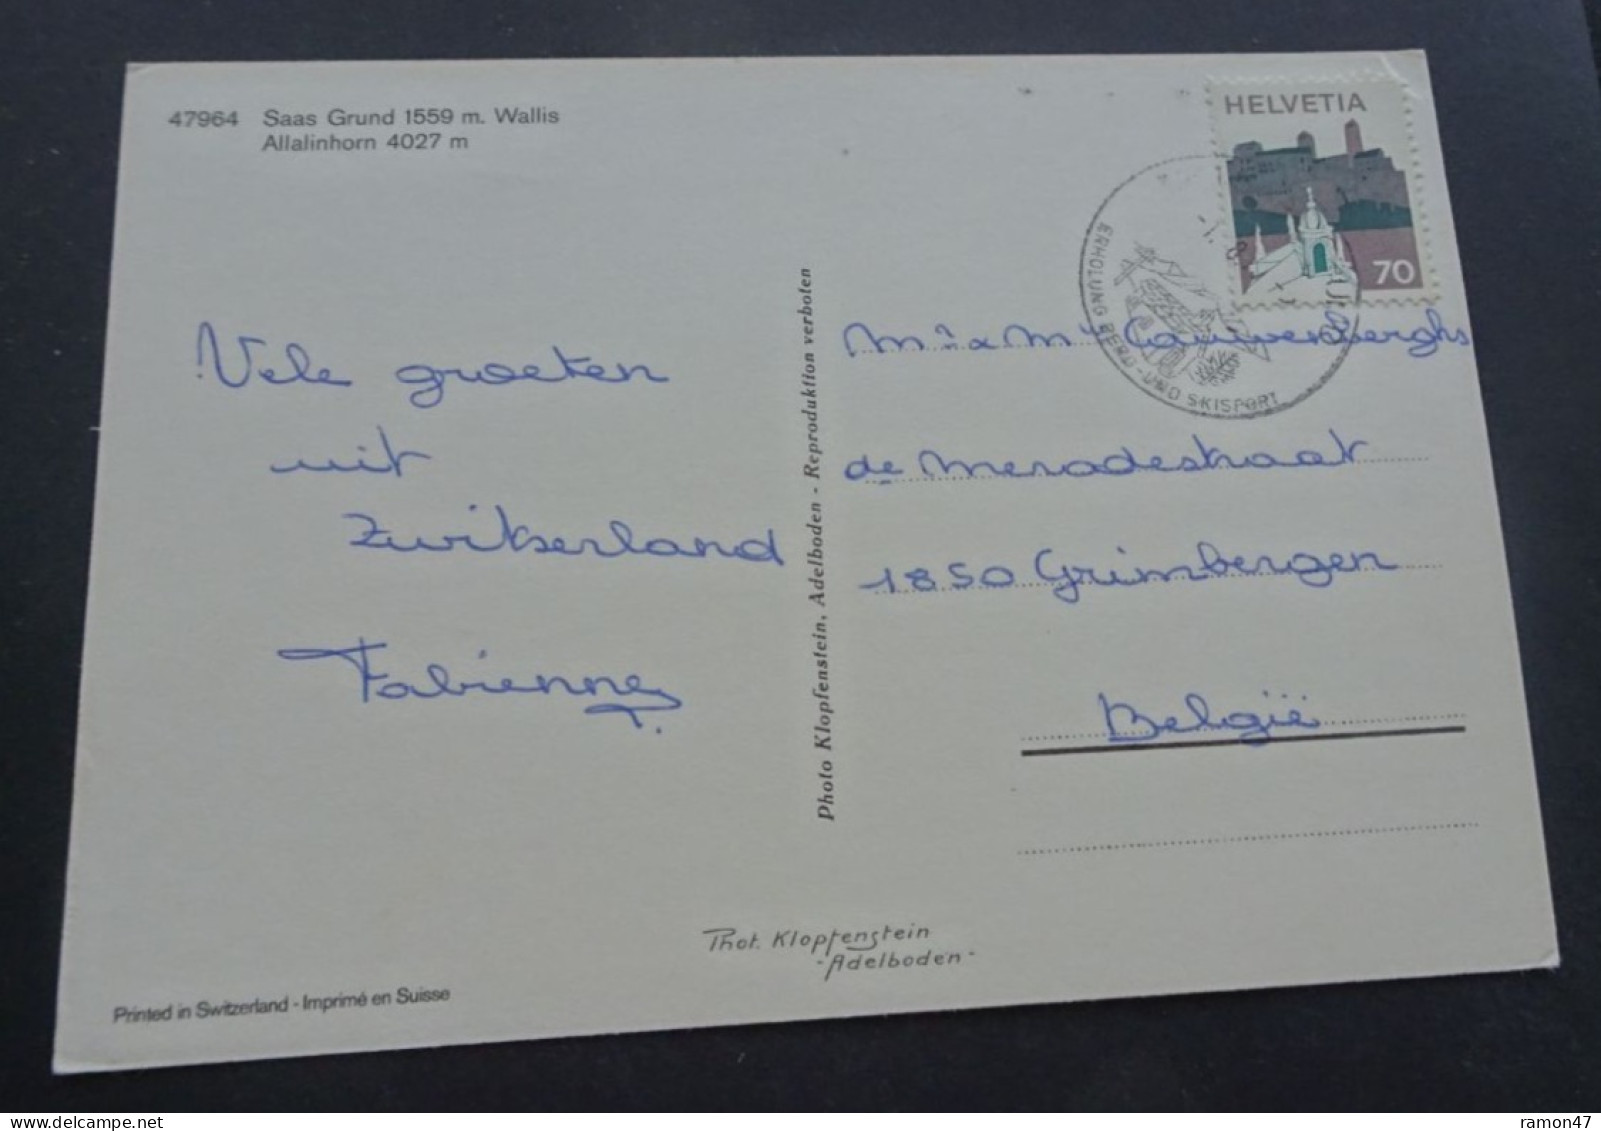 47964 Saas Grund 1559 m. Wallis
Allalinhorn 4027 m
HELVETIA
70
ERHOLUNG BERG- UND SKISPORT
Vele groeten
uit
Zwitserland
Fabienne
Photo Klopfenstein, Adelboden - Reproduktion verboten
Mr & Mme Cauwenberghs
de Merodestraat
1850 Grimbergen
België
Phot. Klopfenstein
-Adelboden-
Printed in Switzerland - Imprimé en Suisse
ramon47